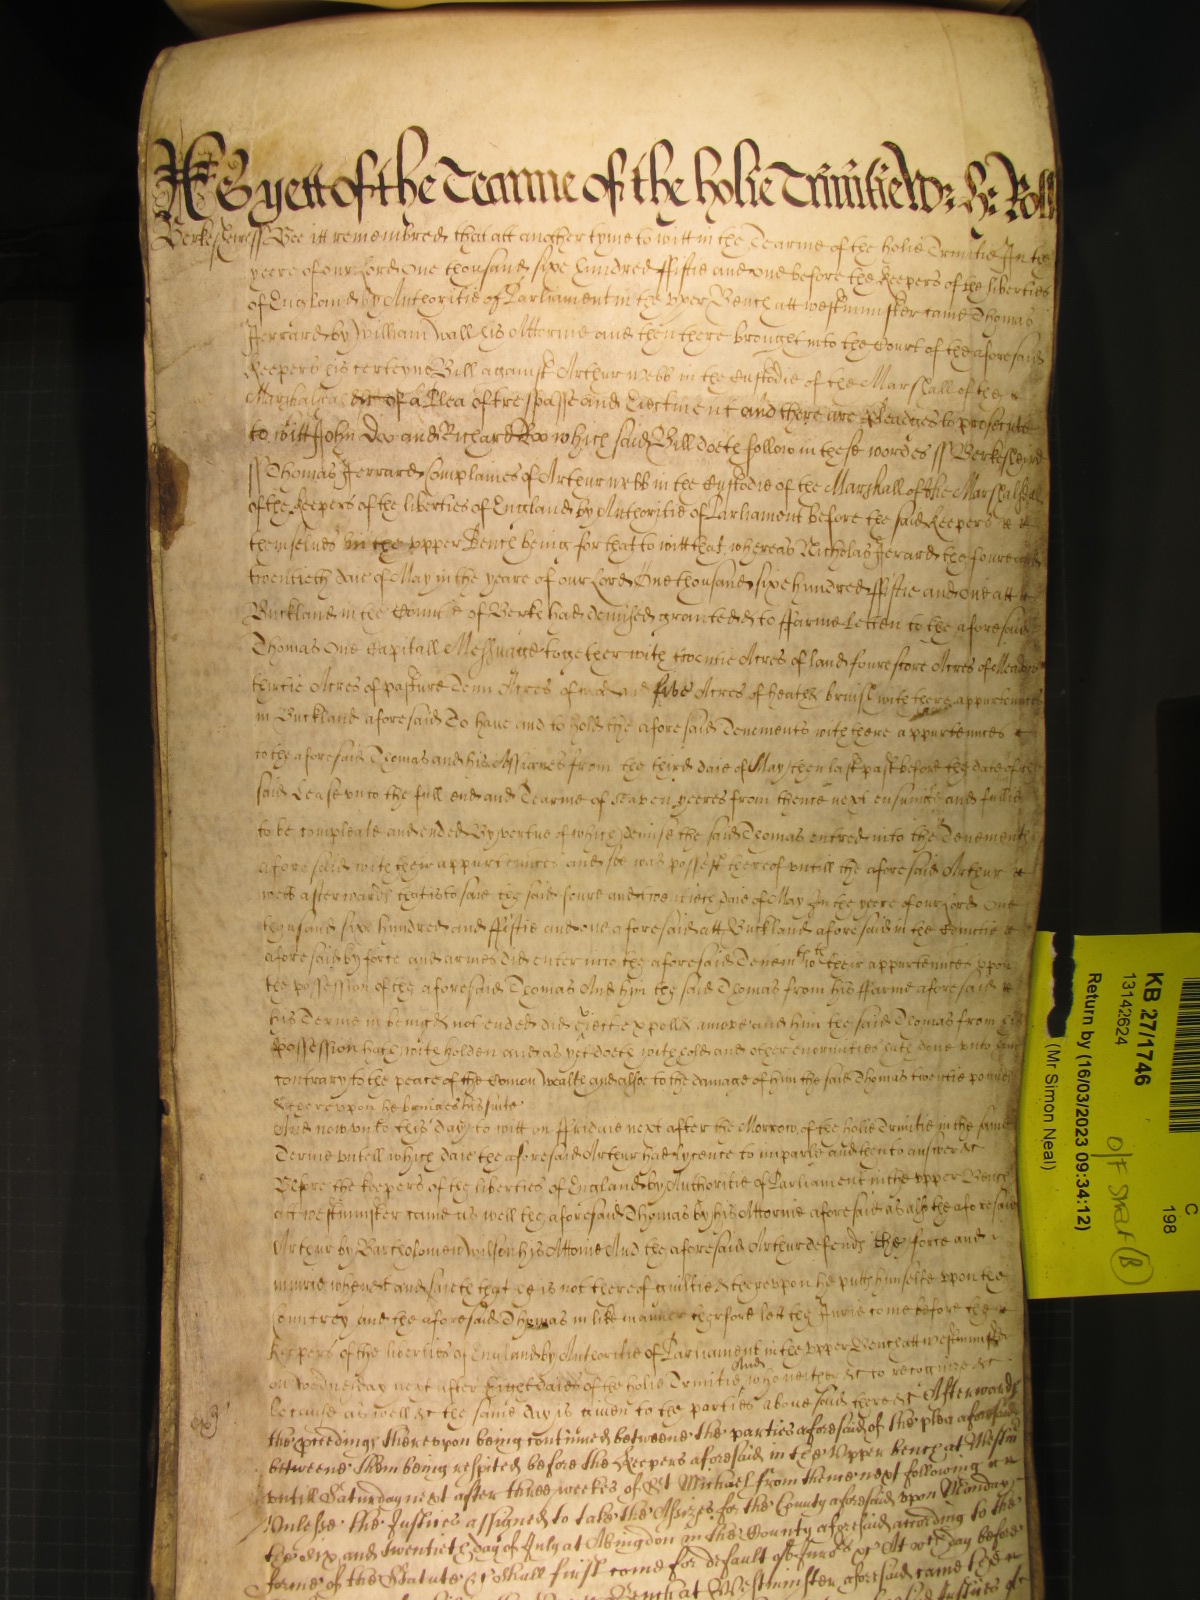 As yett of the Tearme of the holie Trinitie Wr: Hy: Roll
Berkesheire ss Bee itt remembred that att another tyme to witt in the Tearme of the holie Trinitie In the
yeere of our Lord One thousand sixe hundred ffiftie and one before the Keepers of the liberties
of England by Authoritie of Parliament in the vper Bench att westminster came Thomas
Jerrard by William Wall his Attornie and then there brought into the Court of the aforesaid
Keepers his certeyne Bill against Arthur webb in the Custodie of the Marshall of the
Marshalsea of a Plea of trespasse and Eiectment and there are Pleadges to prosecute
to witt John Doo and Richard Roo which said Bill doeth follow in these wordes ss Berkesheire
ss Thomas Jerrard Complaines of Arthur webb in the Custodie of the Marshall of the Marshalsea
of the Keepers of the liberties of England by Authoritie of Parliament before the said Keepers
themselues in the vpper Bench being for that to witt that whereas Nicholas Jerard the foure and
twentieth daie of May in the yeare of our Lord One thousand sixe hundred ffiftie and one att
Buckland in the Countie of Berke had demised granted & to ffarme Letten to the aforesaid
Thomas One Capitall Messuage together with twentie Acres of land fourescore Acres of Meadow
thirtie Acres of pasture Tenn Acres of wood and five Acres of heath & bruish with there appurtennces
in Buckland aforesaid To haue and to hold the aforesaid Tenements with there appurtennces
to the aforesaid Thomas and his Assignes from the third daie of May then last past before the date of the
said Lease vnto the full end and Tearme of Seaven yeeres from thence next ensuinge and fullie
to be compleate and ended By vertue of which demise the said Thomas entred into the Tenements
aforesaid with their appurtennces and soe was possest thereof vntill the aforesaid Arthur
webb afterwards that is to saie the said foure and twentieth daie of May In the yeere of our Lord One
thousand sixe hundred and ffiftie and one aforesaid att Buckland aforesaid in the Countie
aforesaid by force and armes did enter into the aforesaid Tenemts with their appurtennces vpon
the possession of the aforesaid Thomas And him the said Thomas from his ffarme aforesaid
his Terme in being & not ended did Eiect expell & amove and him the said Thomas from his
possession hath with holden and as yet doeth withhold and other enormities hath done vnto him
contrary to the peace of the Comon Wealth and alsoe to the damage of him the said Thomas twentie pounds
& thereupon he bringes his suite
And now vnto this day to witt on ffridaie next after the Morrow of the holie Trinitie in the same
Terme vntill which daie the aforesaid Arthur had lycence to imparle and then to answer &c
Before the keepers of the liberties of England by Authoritie of Parliament in the vpper Bench
att westminster came as well the aforesaid Thomas by his Attornie aforesaid as alsoe the aforesaid
Arthur by Bartholomew Wilson his Attornie And the aforesaid Arthur defends the force and
iniurie when &c and saieth that he is not thereof guiltie & thereupon he putts himselfe vpon the
Countrey and the aforesaid Thomas in like manner therfore lett the Jurie come before the
Keepers of the liberties of England by Authoritie of Parliament in the vpper Bench att westminster
on Wednesday next after Eight daies of the holie Trinitie And who neither &c to recognize &c
because as well &c the same day is giuen to the parties aboue said there &c Afterwards
the pceedings therevpon being continued betweene the parties aforesaid of the plea aforesaid
betweene them being respited before the Keepers aforesaid in the Vpper bench at Westmr
vntill Saturday next after three weekes of St Michael from thence next following
Vnlesse the Justices assigned to take the Assizes for the County aforesaid vpon Monday
the six and twentieth day of July at Abingdon in the County aforesaid according to the
forme of the Statute &c shall first come for default of Jurors &c At wch day before
Bench at Westminster aforesaid came the
KB 27/1746
13142624
Return by (16/03/2023 09:34:12)
(Mr Simon Neal)
C
198